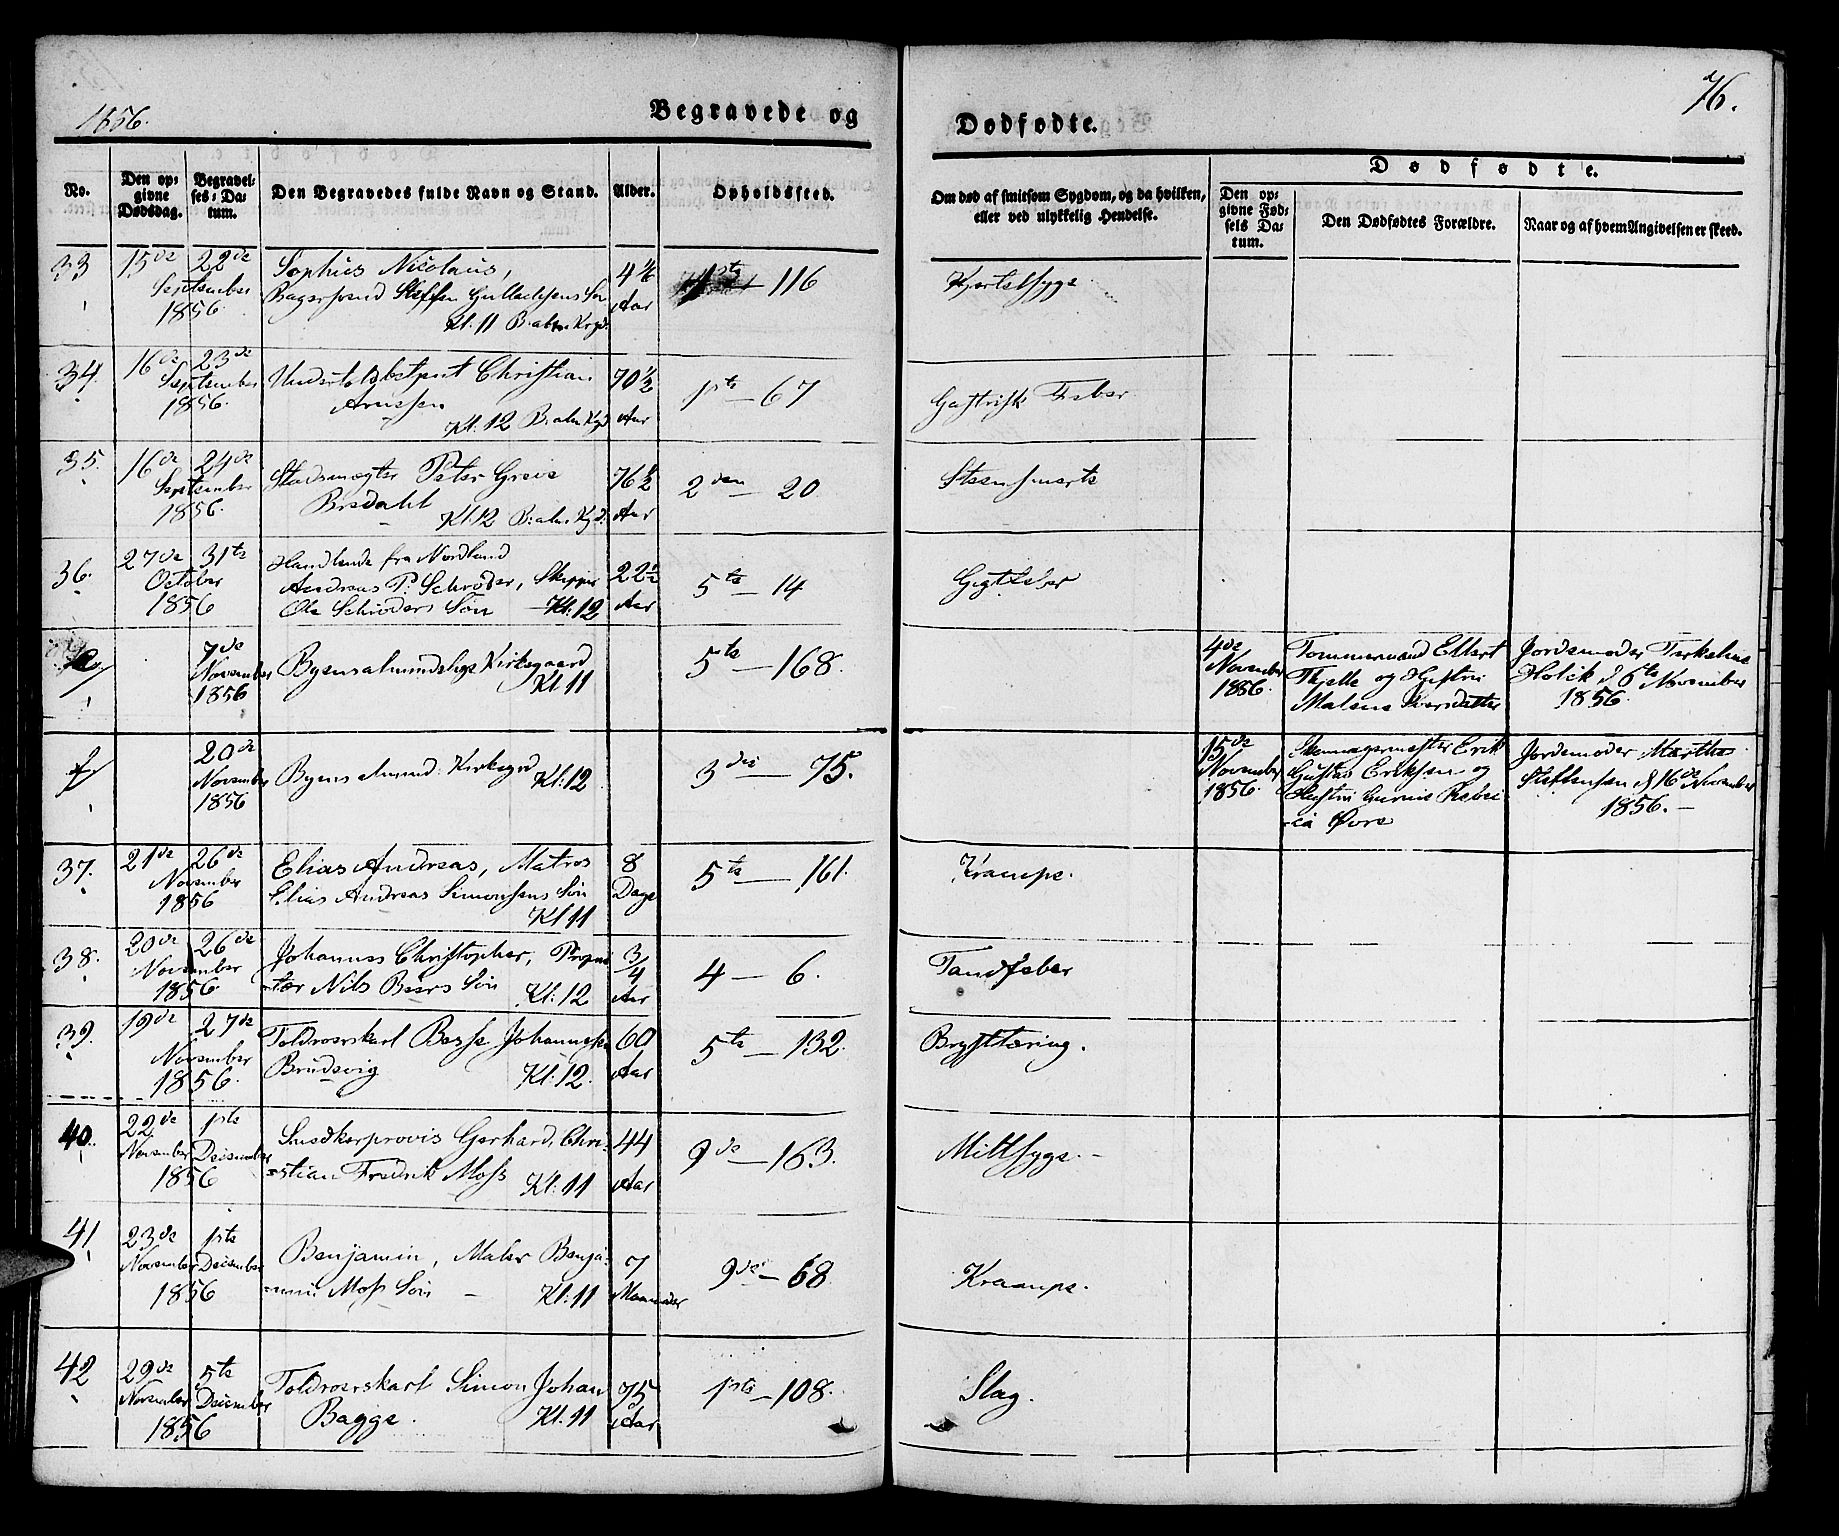 1856.
Begravede og
Dødfødte.
76.
No.
Den opgivne Dødsdag.
Begravelses-Datum.
Den Begravedes fulde Navn og Stand.
Alder.
Opholdssted.
Om død af smitsom Sygdom, og da hvilken, eller ved ulykkelig Hendelse.
Dødfødte.
Den opgivne Fødsels Datum.
Den Dødfødtes Forældre.
Naar og af hvem Angivelsen er skeed.
33 15de 22de Sophus Nicolaus, 4 Aar 1ste — 116 Kjertelsyge
September
1856. Kl: 11
34. 16de 23de Christian 70 1/2 Aar 1ste — 67 Gastrisk Feber
September
1856. Kl: 12
35. 16de 24de Peter Greve 76 1/2 Aar 2den — 20 Steensmerte
September Bredahl
1856. Kl: 12
36. 27de 31te Handlende fra Nordland 22 1/2 Aar 5te — 14 Gigtfeber
October Andreas P: Schrøder, Skipper
1856 Ole Schrøders Søn — Kl: 12
7de Byens almindelige Kirkegaard 5te — 168.
November Kl 11
1856
4de November 1856.
Tømmermand Ellert
Thjelle og Hustru
Malene
Jordemoder
Holck d 6te November
1856.
20de Byens almind: Kirkegrd Kl: 12 3die — 75.
November
1856
15de November 1856.
Erik
Gustav Eriksen og
Hustru
Jordemoder Martha
Steffensen d 16de November
1856. —
37. 21de 26de Elias Andreas, Matros 8 Dage 5te — 161. Krampe.
November Elias Andreas Simonsens Søn
1856 Kl 11
38. 20de 26de Johannes Christopher, 3/4 Aar 4 — 6. Tandfeber
November Nils Beers Søn Kl: 12
1856.
39. 19de 27de Toldroerskarl Johannesen 60 Aar 5te — 132. Brysttæring.
November Brudevig Kl: 12.
1856.
40. 22de 1ste Gerhard Chri- 44 Aar 9de — 163. Miltsyge. —
November December -stian Fredrik Moss Kl: 11
1856
41. 23de 1ste Benjamin, Maler Benja- 7 Maaneder 9de — 68 Krampe.
November December -min Moss Søn — Kl: 11
1856
42 29de 5te Toldroerskarl Simon Johan 75 Aar 1ste — 108. Slag.
November December Bagge. Kl: 11
1856